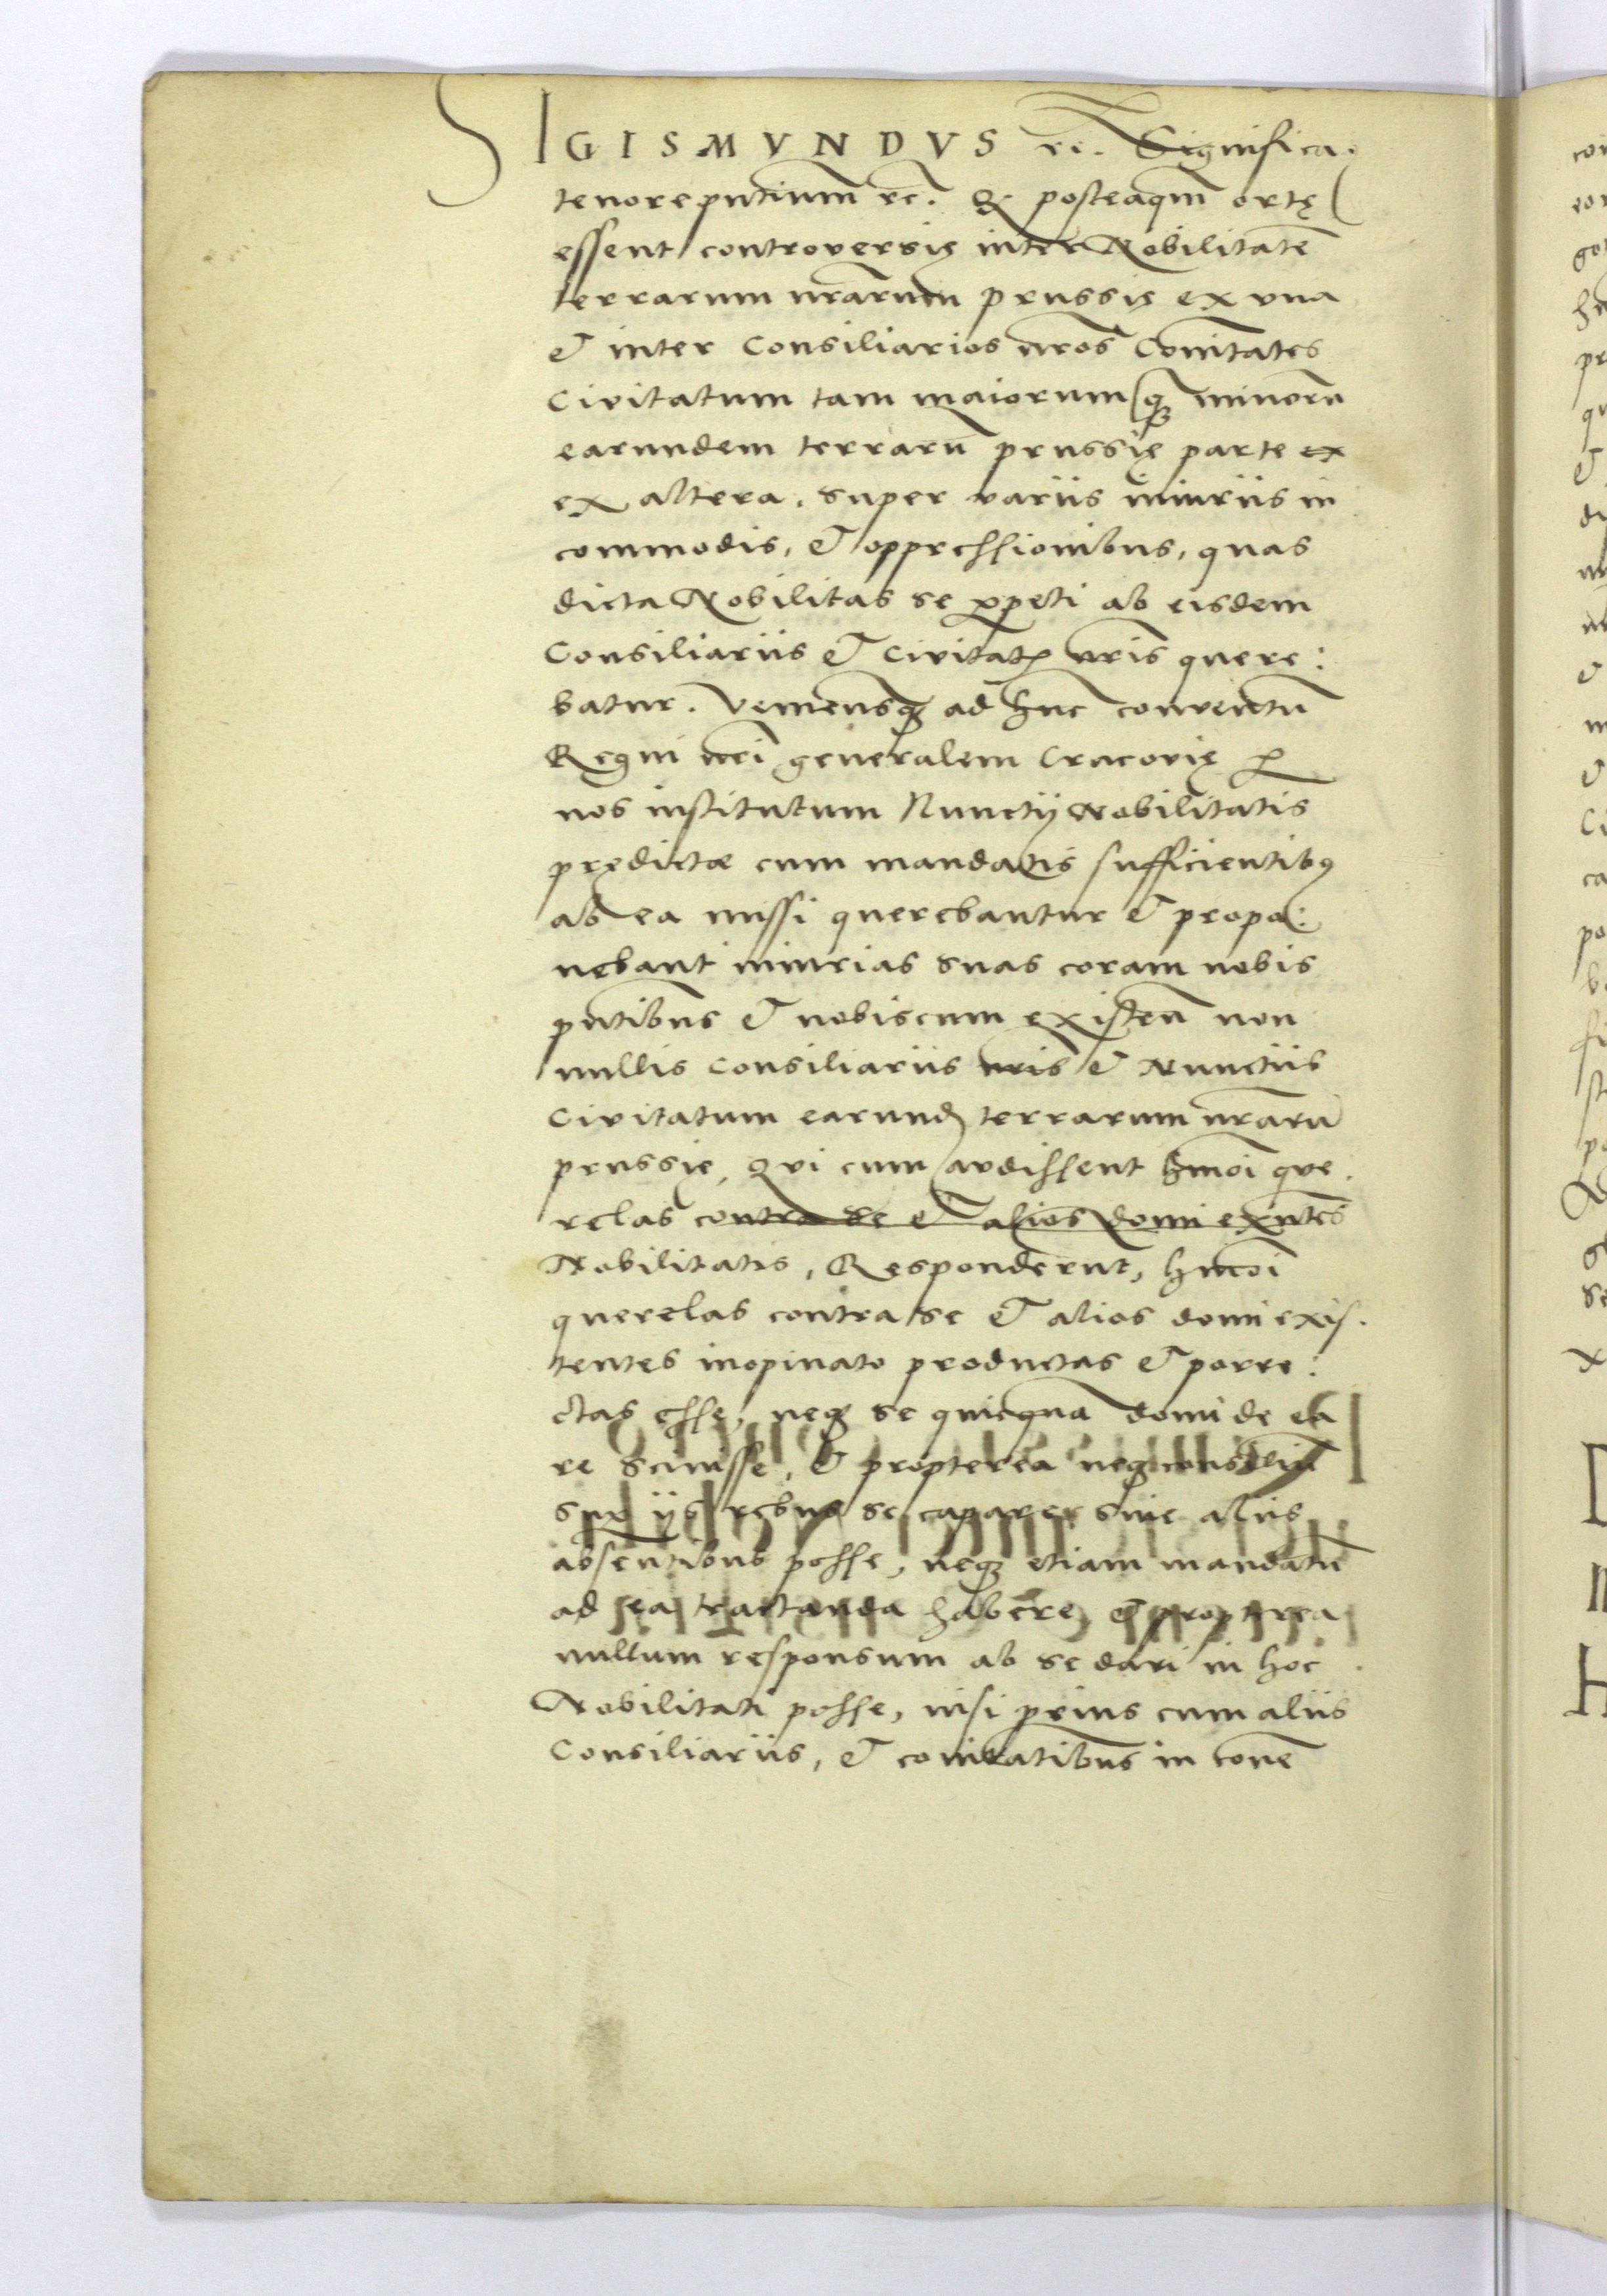 SIGISMVNDVS rc. Significa.
tenore pñtium̃ rc. Q posteaqm̃ ortę
essent controversię inter Nobilitatẽ
terrarum nr̃arum prussię ex vna
et inter Consiliarios nr̃os Com̃tates
Civitatum tam maiorum q̃ minorũ
earundem terrarũ prussię parte ex
ex altera, super variis iniuriis in
commodis, et oppressionibus, quas
dicta Nobilitas se perpeti ab eisdem
Consiliariis et Civitatꝭ nr̃is quere:
batur. veniensqꝫ ad hũc conventũ
Regni nr̃i generalem Cracovię p̱
nos institutum Nunctij Nobilitatis
prędictæ cum mandatis sufficientibꝰ
ab ea missi querebantur et propo:
nebant iniurias suas coram nobis
pñtibus et nobiscum existeñ non
nullis Consiliariis nr̃is et Nunctiis
Civitatum earundꝫ terrarum nr̃arũ
prussię, Qvi cum avdissent hmõi que.
relas contra se et alios domi exñtes
Nobilitatis, Responderũt, hmõi
querelas contra se et alios domi exis.
tentes inopinato productas et porre:
ctas esse, neqꝫ se quicqua domi de ea
re scivisse, et propterea neqꝫ consiliũ
sup̱ ijs rebus se capere sine aliis
absentibus posse, neqꝫ etiam mandatũ
ad ea tractanda habere, et propterea
nullum responsum ab se dari in hoc
Nobilitati posse, nisi prius cum aliis
Consiliariis, et com̃tatibus in conẽ